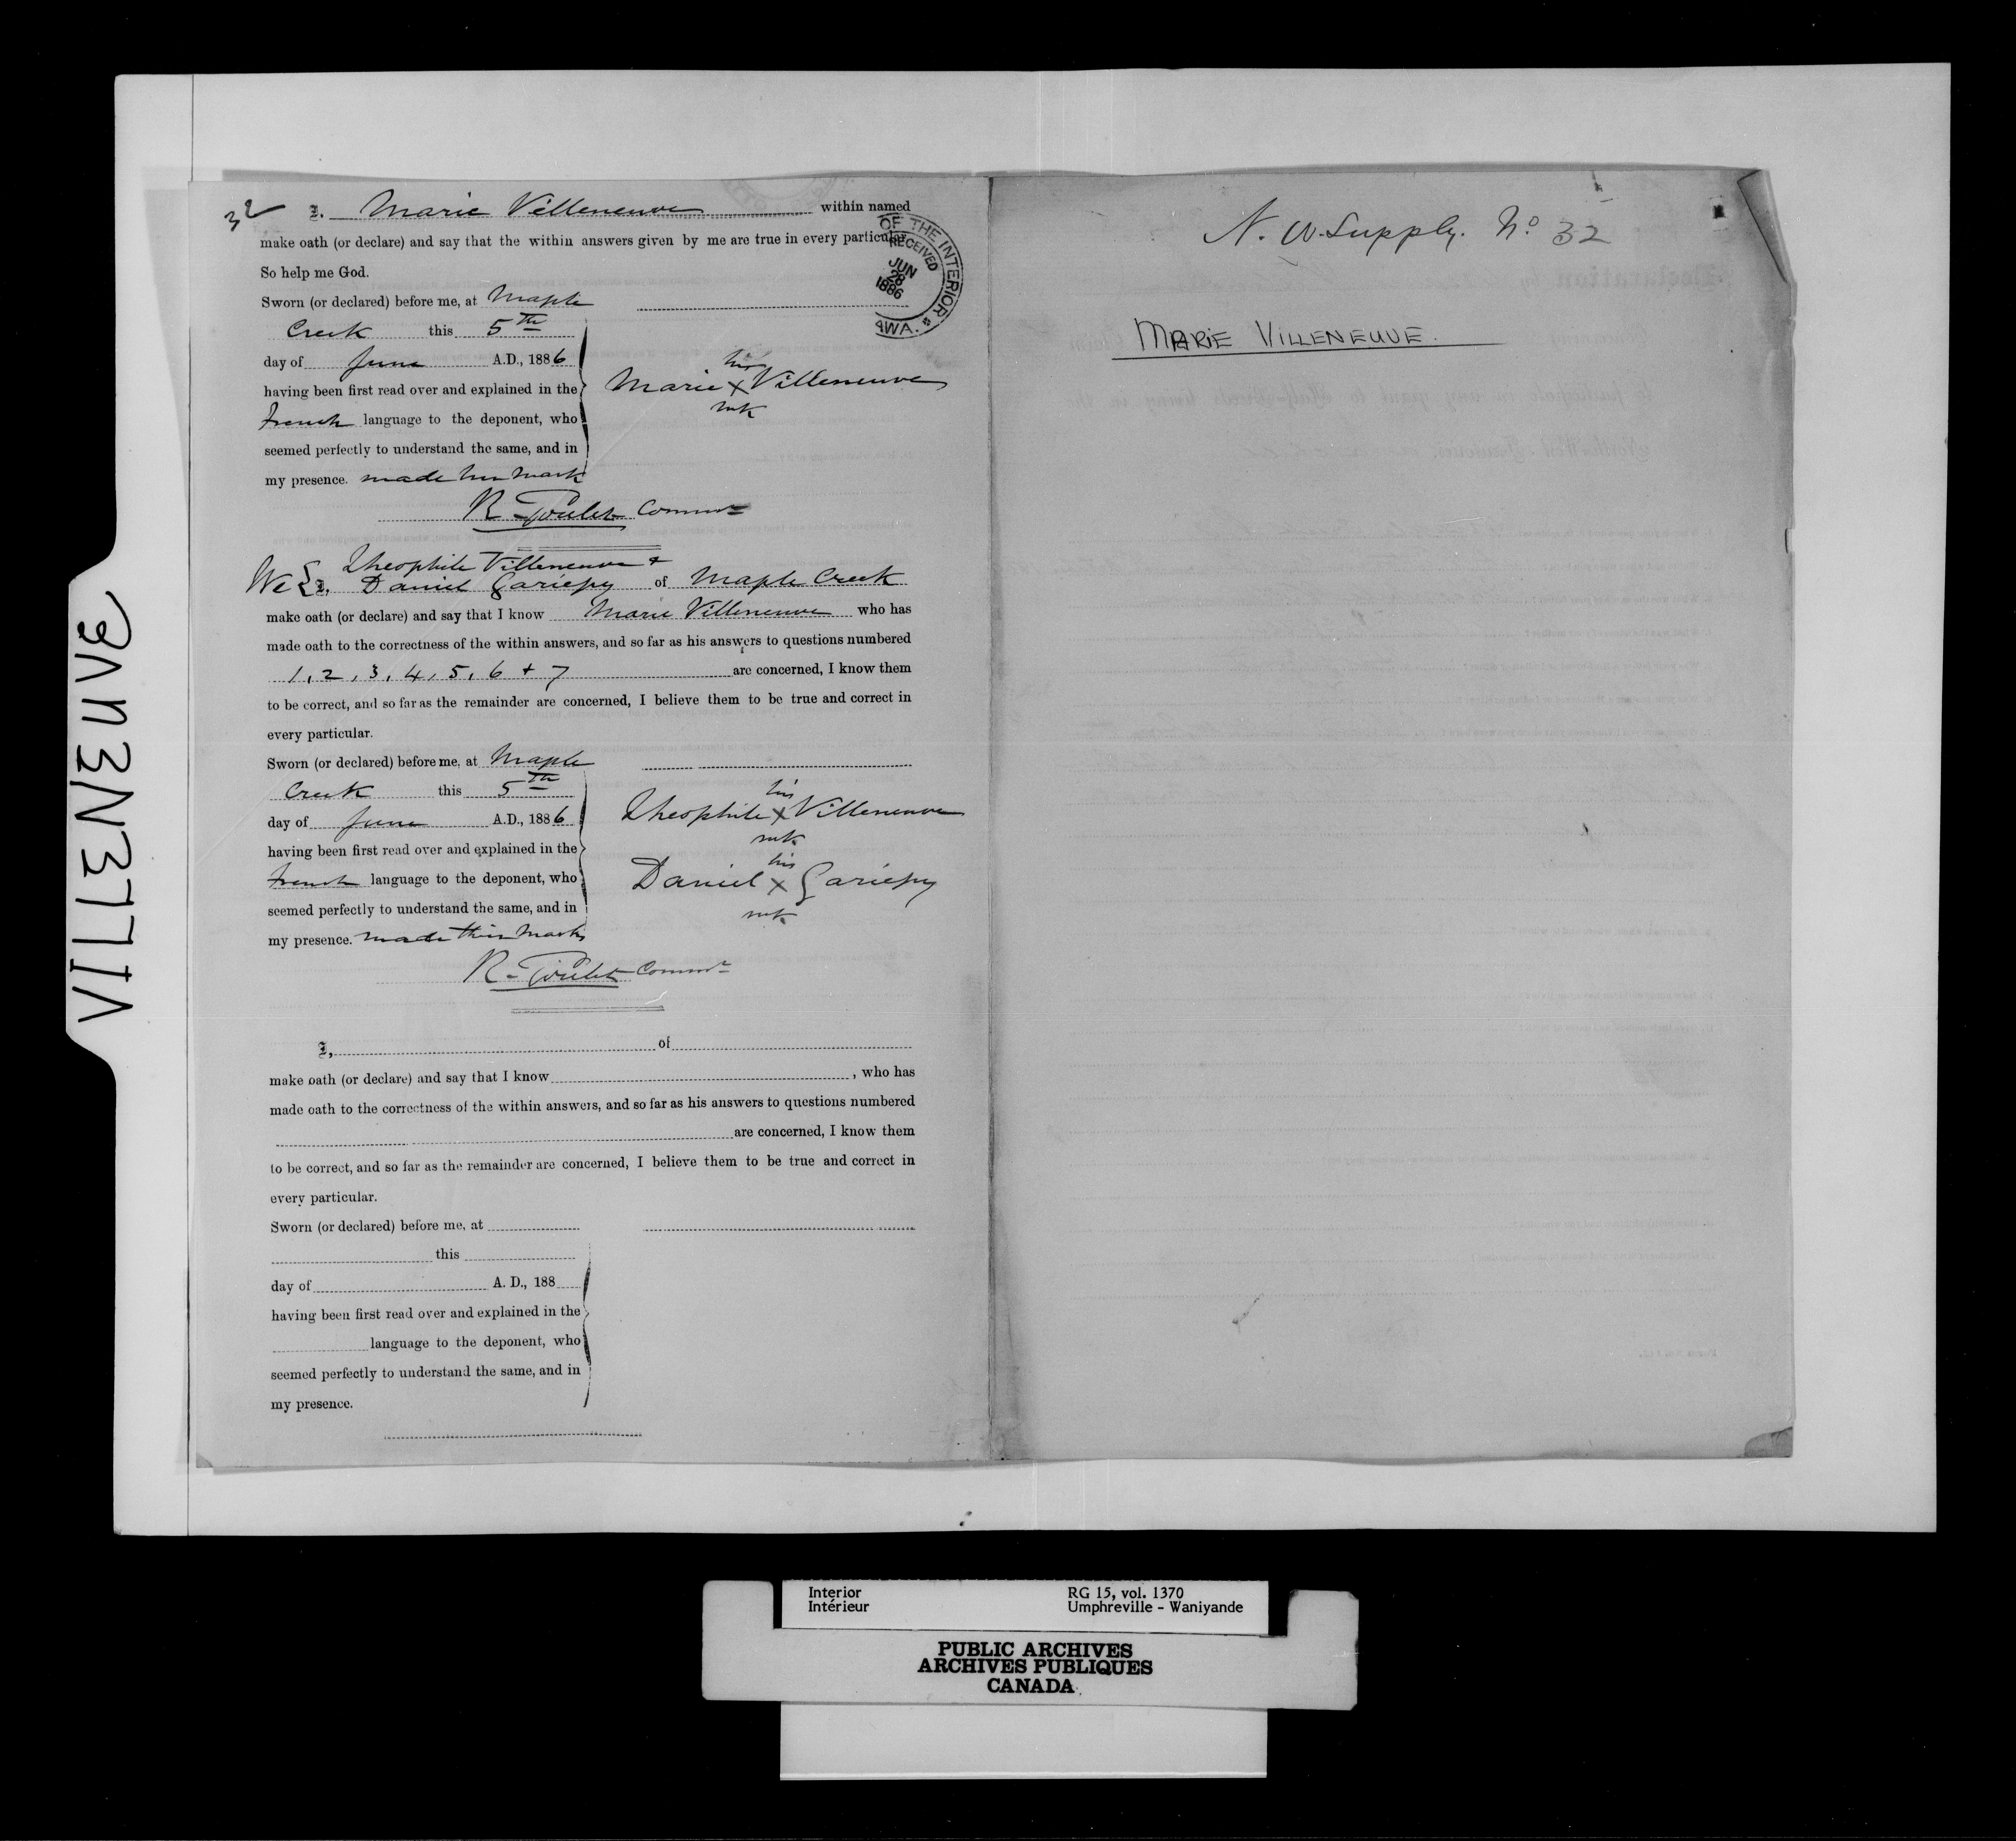 32
I. Marie Villeneuve within named
make oath (or declare) and say that the within answers given by me are true in every particular
So help me God.
Sworn (or declared) before me, at Maple
Creek this 5th
day of June A.D., 1886
having been first read over and explained in the
french language to the deponent, who
seemed perfectly to understand the same, and in
my presence. made her mark
her
Marie X Villeneuve
mk
R. Goulet Commr
OF THE INTERIOR
RECEIVED
JUN
28
1886
AWA.
Theophile Villeneuve +
We { I, Daniel Gariepy of Maple Creek
make oath (or declare) and say that I know Marie Villeneuve who has
made oath to the correctness of the within answers, and so far as his answers to questions numbered
1, 2, 3, 4, 5, 6 + 7 are concerned, I know them
to be correct, and so far as the remainder are concerned, I believe them to be true and correct in
every particular.
Sworn (or declared) before me, at Maple
Creek this 5th
day of June A.D., 1886
having been first read over and explained in the
french language to the deponent, who
seemed perfectly to understand the same, and in
my presence. made their marks
his
Theophile X Villeneuve
mk
his
Daniel X Gariepy
mk
R. Goulet Commr
I, of
make oath (or declare) and say that I know , who has
made oath to the correctness of the within answers, and so far as his answers to questions numbered
are concerned, I know them
to be correct, and so far as the remainder are concerned, I believe them to be true and correct in
every particular.
Sworn (or declared) before me, at
this
day of A. D., 188
having been first read over and explained in the
language to the deponent, who
seemed perfectly to understand the same, and in
my presence.
N. W. Supply. No 32
MARIE VILLENEUVE.
VILLENEUVE
Interior
Intérieur
RG 15, vol. 1370
Umphreville - Waniyande
PUBLIC ARCHIVES
ARCHIVES PUBLIQUES
CANADA